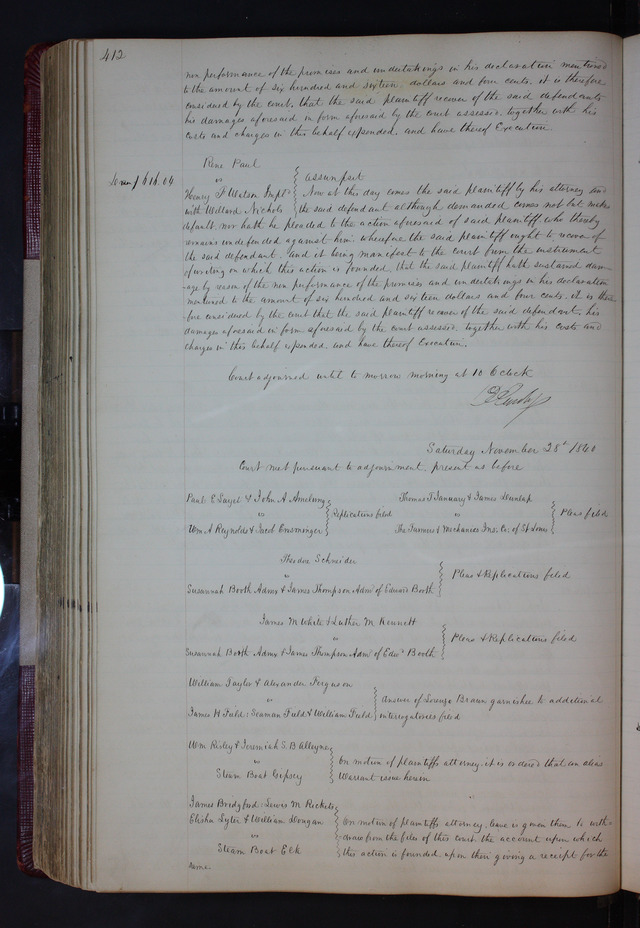 412
non performance of the promises and undertakings in his declaration mentioned
to the amount of six hundred and sixteen dollars and four cents. it is therefore
considered by the court, that the said plaintiff recover of the said defendants
his damages aforesaid in form aforesaid by the court assessed together with his
costs and charges in this behalf expended, and have thereof Execution.
Rene Paul
vs
assumpsit
616.04
Henry F Watson Impl^d
with Willard Nichols
Now at this day comes the said plaintiff by his attorney and
the said defendant although demanded comes not but makes
default, nor hath he pleaded to the action aforesaid of said plaintiff who thereby
remains undefended against him, wherefore the said plaintiff ought to recover of
the said defendant, and it being manifest to the court from the instrument
of writing on which this action is founded, that the said plaintiff hath sustained dam-
age by reason of the non performance of the promises and undertakings in his declaration
mentioned to the amount of six hundred and sixteen dollars and four cents. it is there
fore considered by the court that the said plaintiff recover of the said defendant, his
damages aforesaid in form aforesaid by the court assessed, together with his costs and
charges in this behalf expended, and have thereof Execution.
Court adjourned until to morrow morning at 10 O'clock
Saturday November 28th 1840
Court met pursuant to adjournment, present as before
Paul E & John A Amelung
vs
Wm A Reynolds & Jacob
Replications filed
Thomas T January & James Dunlap
vs
The Farmers & Mechanics Ins. Co. of St Louis
Pleas filed
Theodore Schneider
vs
Susannah Booth Admx & James Thompson Adm^r of Edward Booth
Pleas & Replications filed
James M White & Luther M Kennett
vs
Susannah Booth Admx & James Thompson Adm^r of Edw^d Booth
Pleas & Replications filed
William Taylor & Alexander Ferguson
vs
James H Field: Seaman Field & William Field
answer of Braun garnishee to additional
interrogatories filed
Wm Risley & Jeremiah S. B Alleyne
vs
Steam Boat Gipsey
On motion of plaintiffs attorney. it is ordered that an alias
Warrant issue herein
James Bridgford: Lewis M Ricketts
Elisha & William
vs
Steam Boat Elk
On motion of plaintiffs attorney, leave is given them to with-
draw from the files of this court the account upon which
this action is founded, upon their giving a receipt for the
same.